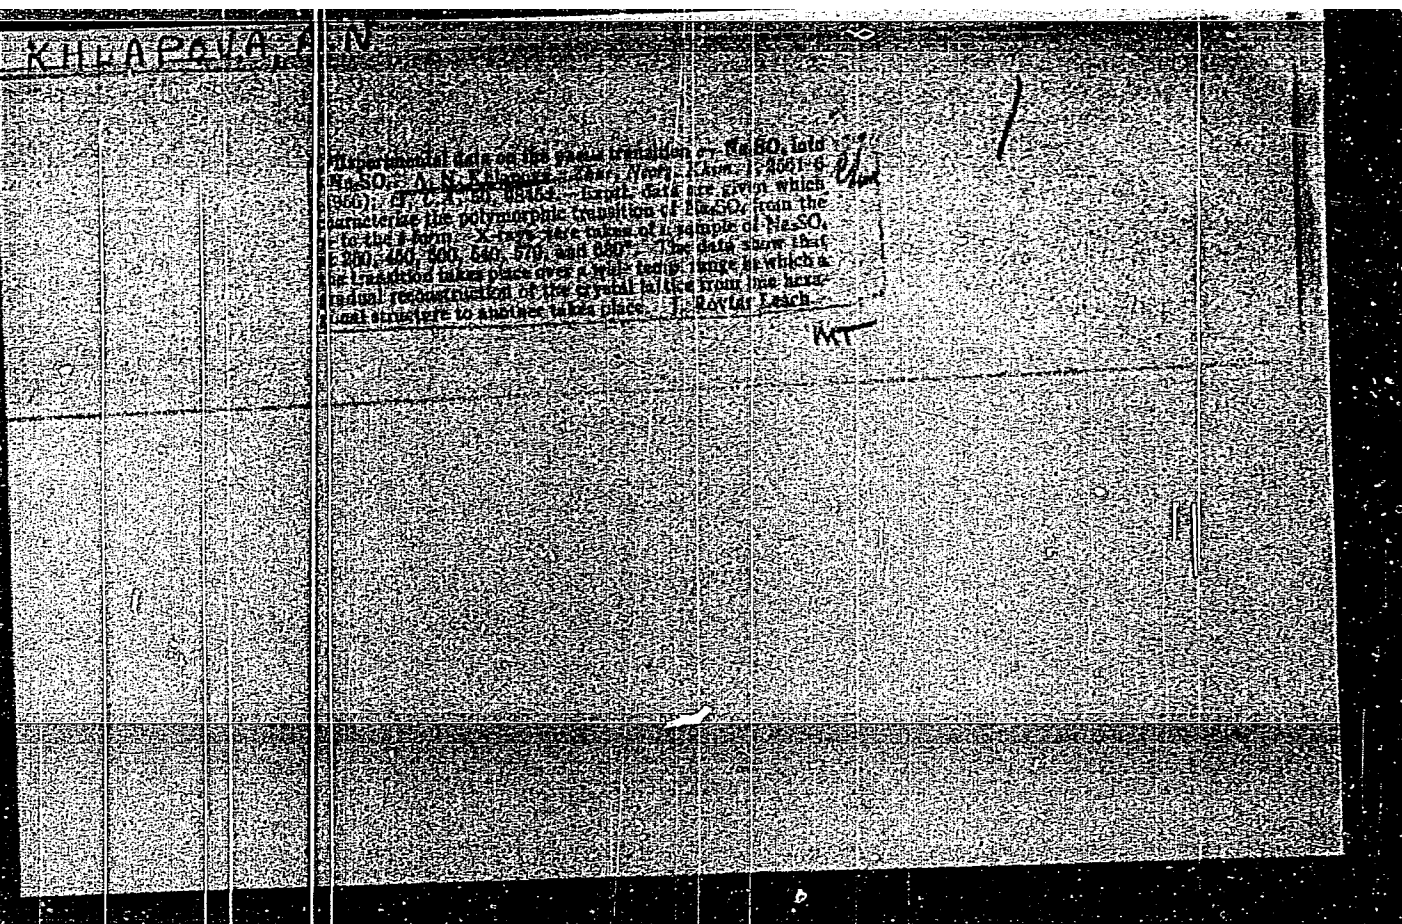 KHLAPOVA, A. N.
Experimental data on the phase transition Na₂SO₄ into
Na₂SO₄. A. N. Khlapova. Zhur. Neorg. Khim. 1, 2561-6
cf. C.A. 50, Exptl. data are given which
characterize the polymorphic transition of Na₂SO₄ from the
to the form. X-rays were taken of a sample of Na₂SO₄
250, 450, 500, 540, 570, and The data show that
the transition takes place over a wide temp. range in which a
gradual reconstruction of the crystal lattice from one hexa-
gonal structure to another takes place. J. Rovtar Leach
MT